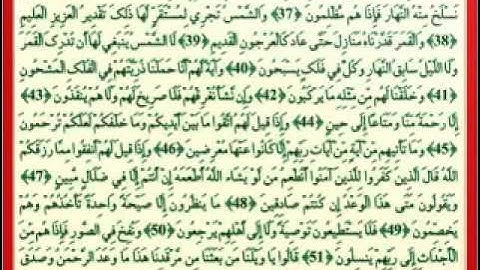 نَسْلَخُ مِنْهُ النَّهَارَ فَإِذَا هُم مُّظْلِمُونَ (37) وَالشَّمْسُ تَجْرِي لِمُسْتَقَرٍّ لَّهَا ذَلِكَ تَقْدِيرُ الْعَزِيزِ الْعَلِيمِ
(38) وَالْقَمَرَ قَدَّرْنَاهُ مَنَازِلَ حَتَّى عَادَ كَالْعُرْجُونِ الْقَدِيمِ (39) لَا الشَّمْسُ يَنبَغِي لَهَا أَن تُدْرِكَ الْقَمَرَ
وَلَا اللَّيْلُ سَابِقُ النَّهَارِ وَكُلٌّ فِي فَلَكٍ يَسْبَحُونَ (40) وَآيَةٌ لَّهُمْ أَنَّا حَمَلْنَا ذُرِّيَّتَهُمْ فِي الْفُلْكِ الْمَشْحُونِ
(41) وَخَلَقْنَا لَهُم مِّن مِّثْلِهِ مَا يَرْكَبُونَ (42) وَإِن نَّشَأْ نُغْرِقْهُمْ فَلَا صَرِيخَ لَهُمْ وَلَا هُمْ يُنقَذُونَ (43)
إِلَّا رَحْمَةً مِّنَّا وَمَتَاعًا إِلَى حِينٍ (44) وَإِذَا قِيلَ لَهُمُ اتَّقُوا مَا بَيْنَ أَيْدِيكُمْ وَمَا خَلْفَكُمْ لَعَلَّكُمْ تُرْحَمُونَ
(45) وَمَا تَأْتِيهِم مِّنْ آيَةٍ مِّنْ آيَاتِ رَبِّهِمْ إِلَّا كَانُوا عَنْهَا مُعْرِضِينَ (46) وَإِذَا قِيلَ لَهُمْ أَنفِقُوا مِمَّا رَزَقَكُمُ
اللَّهُ قَالَ الَّذِينَ كَفَرُوا لِلَّذِينَ آمَنُوا أَنُطْعِمُ مَن لَّوْ يَشَاءُ اللَّهُ أَطْعَمَهُ إِنْ أَنتُمْ إِلَّا فِي ضَلَالٍ مُّبِينٍ (47)
وَيَقُولُونَ مَتَى هَذَا الْوَعْدُ إِن كُنتُمْ صَادِقِينَ (48) مَا يَنظُرُونَ إِلَّا صَيْحَةً وَاحِدَةً تَأْخُذُهُمْ وَهُمْ
يَخِصِّمُونَ (49) فَلَا يَسْتَطِيعُونَ تَوْصِيَةً وَلَا إِلَى أَهْلِهِمْ يَرْجِعُونَ (50) وَنُفِخَ فِي الصُّورِ فَإِذَا هُم مِّنَ
الْأَجْدَاثِ إِلَى رَبِّهِمْ يَنسِلُونَ (51) قَالُوا يَا وَيْلَنَا مَن بَعَثَنَا مِن مَّرْقَدِنَا هَذَا مَا وَعَدَ الرَّحْمَنُ وَصَدَقَ